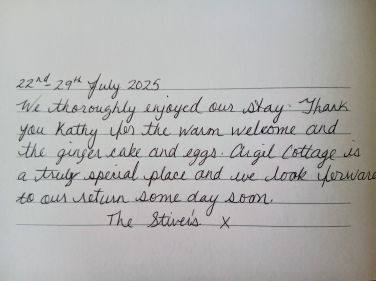 22nd - 29th July 2025
We thoroughly enjoyed our stay. Thank
you Kathy for the warm welcome and
the ginger cake and eggs. Argil Cottage is
a truly special place and we look forward
to our return some day soon.
The Stivers x